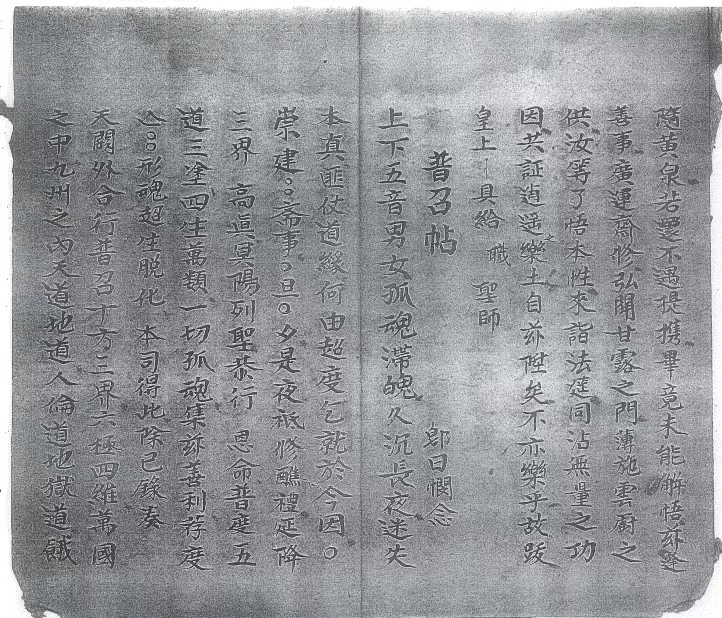 隨黃泉若還不遇提携畢竟未能解悟玆逢
善事廣運齋修弘開甘露之門薄施雲厨之
供汝等了悟本性來詣法筵同沾無量之功
因共証逍遥樂土自玆陞矣不亦樂乎故跋
皇上 具給 職 聖師
普召帖 即日憫念
上下五音男女孤魂滯魄久沉長夜迷失
本真匪仗道緣何由超度乞就於今因〇
崇建〇〇斎事〇旦〇夕是夜祇修醮禮延降
三界 高眞冥陽列聖恭行 恩命普度五
道三塗四生萬類一切孤魂集玆善利荐度
亼〇〇形魂超生脱化 本司得此除已錄奏
天闕外合行普召十方三界六極四維萬國
之中九州之內天道地道人倫道地獄道餓